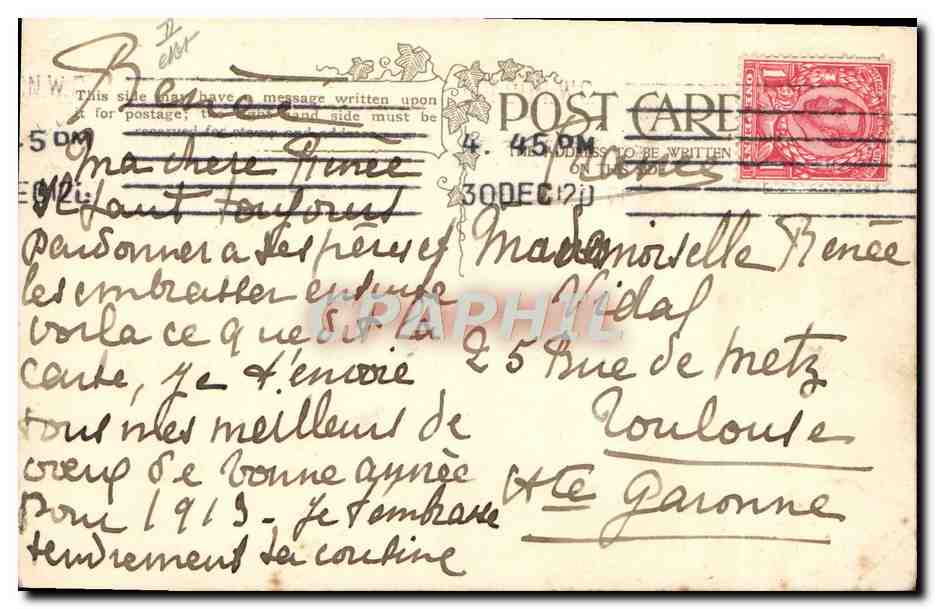 This side may have a message written upon
it for postage; the right hand side must be
reserved for
POST CARD
THE ADDRESS TO BE WRITTEN
ON THIS SIDE
4. 45 PM
30 DEC 12
.45 PM
ONE PENNY
ma chère Renée
Il faut toujours
pardonner à ses pères et
les embrasser ensuite
voila ce que dit la
carte, je t'envoie
tous mes meilleurs de
vœux de bonne année
pour 1913 - je t'embrasse
tendrement ta cousine
France
Mademoiselle Renée
Vidal
25 Rue de Metz
Toulouse
Hte Garonne
CPAPHIL